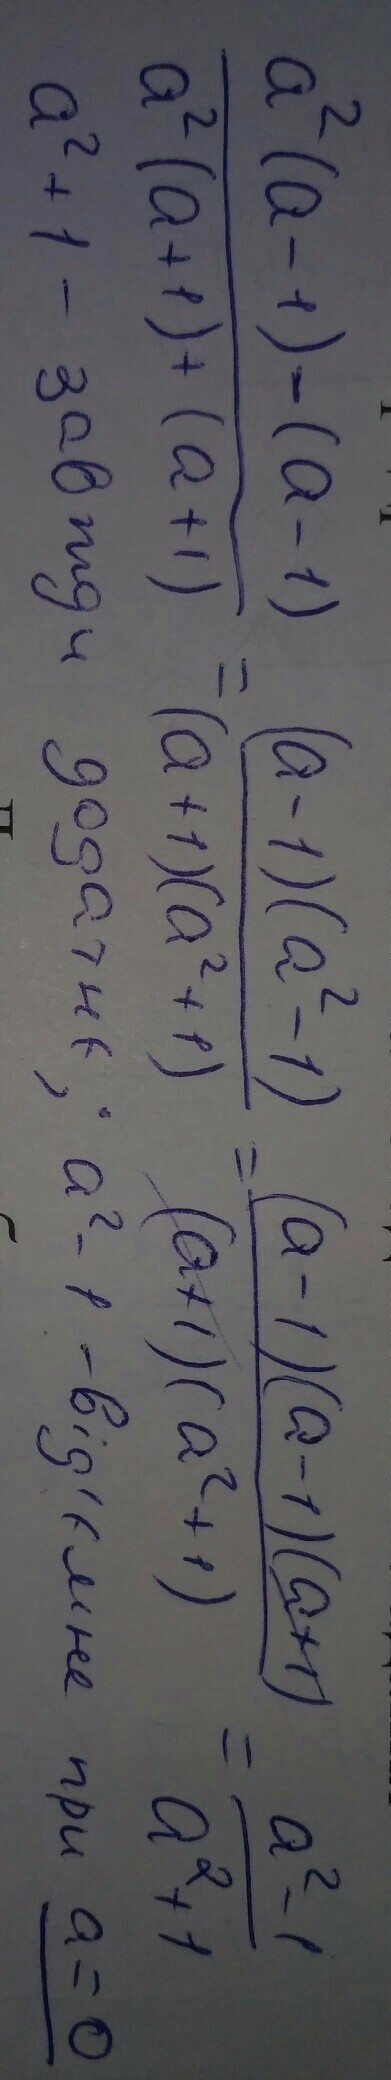 a²(a-1)-(a-1) / a²(a+1)+(a+1) = (a-1)(a²-1) / (a+1)(a²+1) = (a-1)(a-1)(a+1) / (a+1)(a²+1) = a²-1 / a²+1
a²+1 - завжди додатнє, a²-1 - від'ємне при a=0